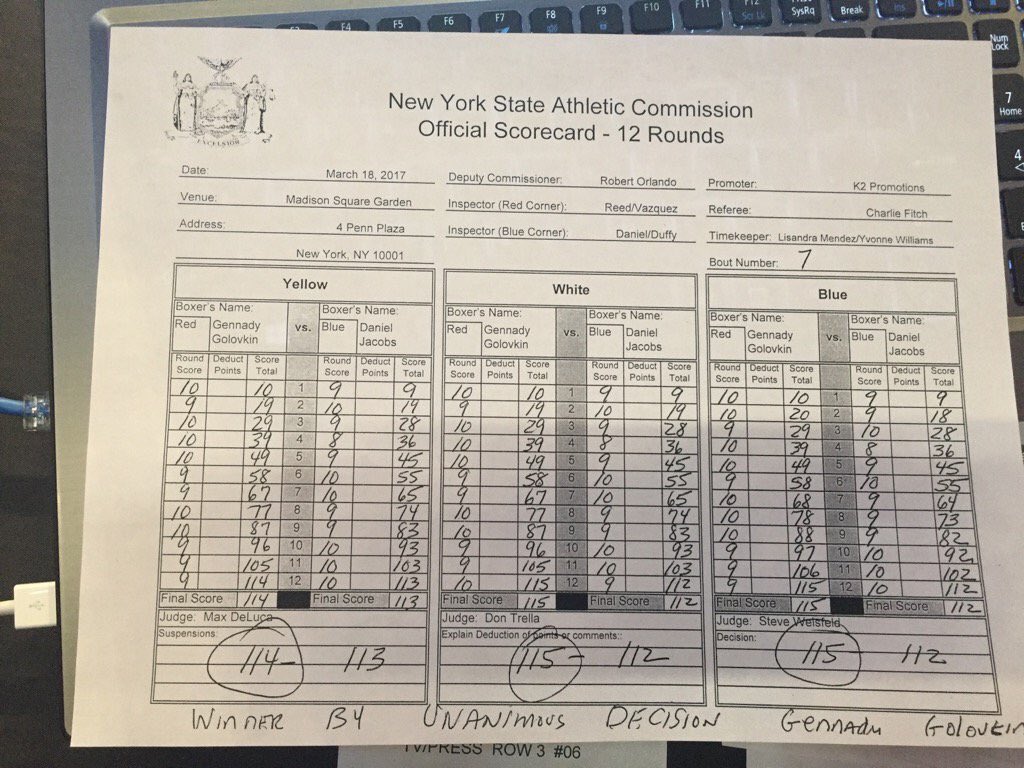 F4 F5 F6 F7 F8 F9 F10 F11 F12 SysRq Break Ins
Scr Lk
Num Lock
7 Home
4
EXCELSIOR
New York State Athletic Commission
Official Scorecard - 12 Rounds
Date: March 18, 2017 Deputy Commissioner: Robert Orlando Promoter: K2 Promotions
Venue: Madison Square Garden Inspector (Red Corner): Reed/Vazquez Referee: Charlie Fitch
Address: 4 Penn Plaza Inspector (Blue Corner): Daniel/Duffy Timekeeper: Lisandra Mendez/Yvonne Williams
New York, NY 10001 Bout Number: 7
Yellow White Blue
Boxer's Name: vs. Boxer's Name: Boxer's Name: vs. Boxer's Name: Boxer's Name: vs. Boxer's Name:
Red Gennady Golovkin Blue Daniel Jacobs Red Gennady Golovkin Blue Daniel Jacobs Red Gennady Golovkin Blue Daniel Jacobs
Round Score Deduct Points Score Total Round Score Deduct Points Score Total Round Score Deduct Points Score Total Round Score Deduct Points Score Total Round Score Deduct Points Score Total Round Score Deduct Points Score Total
10 10 1 9 9 10 10 1 9 9 10 10 1 9 9
9 19 2 10 19 9 19 2 10 19 10 20 2 9 18
10 29 3 9 28 10 29 3 9 28 9 29 3 10 28
10 39 4 8 36 10 39 4 8 36 10 39 4 8 36
10 49 5 9 45 10 49 5 9 45 10 49 5 9 45
9 58 6 10 55 9 58 6 10 55 9 58 6 10 55
9 67 7 10 65 9 67 7 10 65 10 68 7 9 64
10 77 8 9 74 10 77 8 9 74 10 78 8 9 73
10 87 9 9 83 10 87 9 9 83 10 88 9 9 82
9 96 10 10 93 9 96 10 10 93 9 97 10 10 92
9 105 11 10 103 9 105 11 10 103 9 106 11 10 102
9 114 12 10 113 10 115 12 9 112 9 115 12 10 112
Final Score 114 Final Score 113 Final Score 115 Final Score 112 Final Score 115 Final Score 112
Judge: Max DeLuca Judge: Don Trella Judge: Steve Weisfeld
Suspensions: Explain Deduction of points or comments:: Decision:
114 - 113 115 - 112 115 - 112
WINNER BY UNANIMOUS DECISION GENNADY GOLOVKIN
TV/PRESS ROW 3 #06